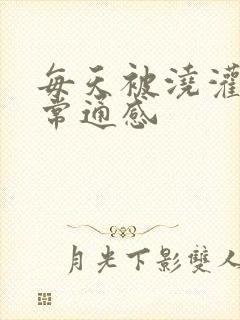 每天被澆灌
常通感
月光下影雙人